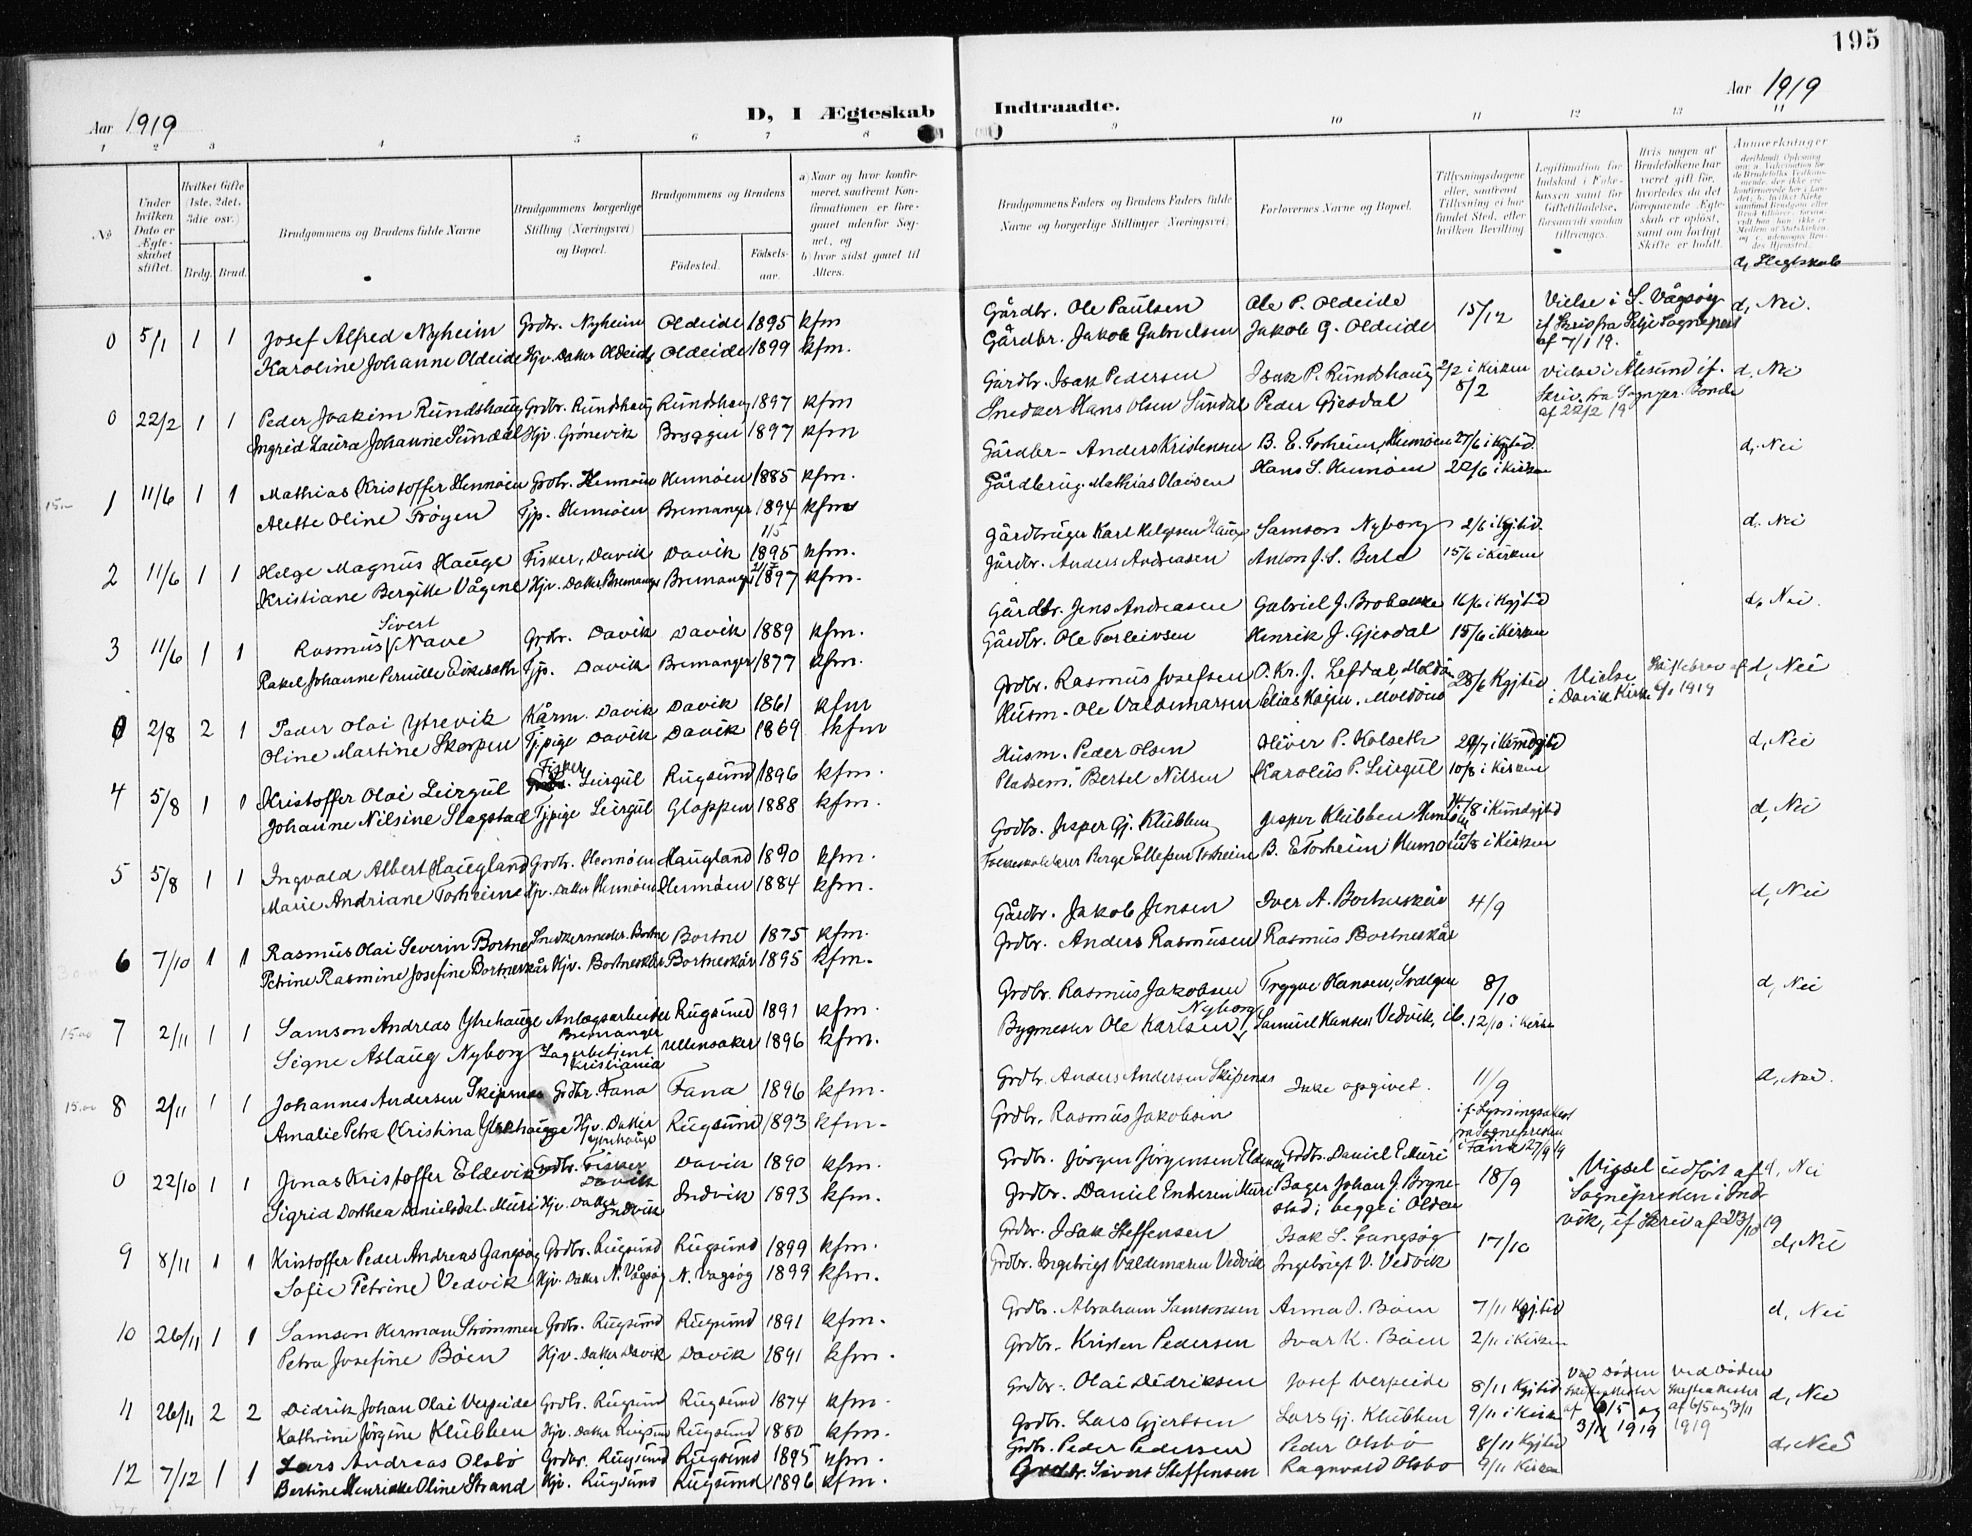 195
Aar 1919
D, I Ægteskab Indtraadte.
Aar 1919
1 2 3 4 5 6 7 8 9 10 11 12 13
No
Under hvilken Dato er Ægteskabet stiftet.
Hvilket Gifte (1ste, 2det, 3die osv.)
Brdg. Brud.
Brudgommens og Brudens fulde Navne
Brudgommens borgerlige Stilling (Næringsvei) og Bopæl.
Brudgommens og Brudens
Fødested.
Fødselsaar.
a) Naar og hvor konfirmeret, saafremt Konfirmationen er foregaaet udenfor Sognet, og
b) hvor sidst gaaet til Alters.
Brudgommens Faders og Brudens Faders fulde Navne og borgerlige Stillinger (Næringsvei)
Forlovernes Navne og Bopæl.
Tillysningsdagene eller, saafremt Tillysning ei har fundet Sted, efter hvilken Bevilling
Legitimation for Indskud i Enkekassen samt for Giftetilladelse, forsaavidt saadan tiltrænges.
Hvis nogen af Brudefolkene har været gift før, hvorledes da det foregaaende Ægteskab er opløst, samt om lovligt Skifte er holdt.
Anmerkninger
d, Slegtskab
0 5/1 1 1 Josef Alfred Nyheim Grdbr. Nyheim Oldeide 1895 kfm Gårdbr. Ole Paulsen Ole P. Oldeide 15/12 Vielse i S. Vågsøy d, Nei.
Karoline Johanne Oldeide Hjv. Datter Oldeide Oldeide 1899 kfm. Gårdbr. Jakob Gabrielsen Jakob G. Oldeide if Skriv fra Selje Sogneprest
af 7/1 19.
0 22/2 1 1 Peder Joakim Rundshaug Grdbr. Rundshaug Rundshaug 1897 kfm Gårdbr. Isak Pedersen Isak P. Rundshaug 2/2 i Kirken Vielse i Ålesund if. d, Nei
Ingrid Laura Johanne Sundal Hjv. Grönevik Bryggen 1897 kfm Snedker Hans Olsen Sundal Peder Gjesdal 8/2 Skriv. fra Sognepr. Bonde
af 22/2 19
15.— 1 11/6 1 1 Mathias Kristoffer Hennøen Grdbr. Hennøen Hennøen 1885 kfm. Gårdbr- Anders Kristensen B. E. Torheim, Hennøen 27/6 i Kgjtid d, Nei
Alette Oline Frøyen Tjp. Hennøen Bremanger 1894 kfm Gårdbrug. Mathias Olaisen Hans S. Hennøen 22/6 i Kirken
2 11/6 1 1 Helge Magnus Hauge Fisker, Davik Davik 1895 kfm. Gårdbruger Karl Helgesen Hauge Samson Nyborg 2/6 i Kgjtid. d. Nei
Kristiane Bergitte Vågene Hjv. Datter Bremanger Bremanger 1897 kfm. Gårdbr. Anders Andreasen Anton J. S. Berle 15/6 i Kirken
3 11/6 1 1 Rasmus Sivert Nave Grdbr. Davik Davik 1889 kfm. Gårdbr. Jens Andreasen Gabriel J. Brobakke 16/6 i Kgjtid d, Nei.
Rakel Johanne Pernille Eikeseth Tjp. Davik Bremanger 1877 kfm. Gårdbr. Ole Torleivsen Henrik J. Gjesdal 15/6 i Kirken
0 2/8 2 1 Peder Olai Ytrevik Kårm. Davik Davik 1861 kfm Grdbr. Rasmus Josefsen O. Kr. J. Lefdal, Maldø 28/6 Kgjtid Vielse Skiftebrev af d, Nei
Oline Martine Skorpen Tj.pige Davik Davik 1869 kfm Husm. Ole Valdemarsen Elias Hagen, Moldöen i Davik Kirke 6/1 1919
4 5/8 1 1 Kristoffer Olai Leirgul Fisker Leirgul Rugsund 1896 kfm. Husm. Peder Olsen Oliver P. Kolseth 29/7 i Kundgjtid d, Nei
Johanne Nilsine Slagstad Tjpige Leirgul Gloppen 1888 kfm. Pladsem. Bertel Nilsen Karolus P. Leirgul 10/8 i Kirken
5 5/8 1 1 Ingvald Albert Haugland Grdbr. Hennøen Haugland 1890 kfm. Grdbr. Jesper Gj. Klubben Jesper Klubben Hennøen /8 i Kundgjtid d, Nei
Marie Andriane Torheim Hjv. Datter Hennøen Hennøen 1884 kfm. Folkeskolelærer Børge Ellefsen Torheim B. E Torheim Hennøen 10/8 i Kirken
6 7/10 1 1 Rasmus Olai Severin Bortne Snedkermester. Bortne Bortne 1875 kfm. Gårdbr. Jakob Jensen Iver A. Bortneskår 4/9 d, Nei
Petrine Rasmine Josefine Bortneskår Hjv. Bortneskår Bortneskår 1895 kfm. Grdbr. Anders Rasmusen Rasmus Bortneskår
15.00 7 2/11 1 1 Samson Andreas Ytrehauge Anlægsarbeider Bremanger Rugsund 1891 kfm. Grdbr. Rasmus Jakobsen Trygve Hansen, Svelgen 8/10 d, Nei
Signe Aslaug Nyborg Lagerbetjent Kristiania Ullensaker 1896 kfm. Bygmester Ole Karlsen Nyborg Samuel Hansen Vedvik, ib. 12/10 i Kirke
15.00 8 2/11 1 1 Johannes Andersen Skipenes Grdbr. Fana Fana 1896 kfm. Grdbr. Anders Andersen Skipenes Ikke opgivet. 11/9 d, Nei.
Amalie Petra Kristina Ytrehauge Hjv. Datter Ytrehauge Rugsund 1893 kfm. Grdbr. Rasmus Jakobsen if. Lysningsattest fra Sognepresten i Fana 27/9 19
0 22/10 1 1 Jonas Kristoffer Eldevik Grdbr. Fisker Davik Davik 1890 kfm. Grdbr. Jörgen Jörgensen Eldevik Grdbr. Daniel E Muri 18/9 Vigsel udført af d, Nei
Sigrid Dorthea Danielsdal. Muri Hjv. Datter Indvik Indvik 1893 kfm. Grdbr. Daniel Endresen Muri Bager Johan J. Brynestad; begge i Olden Sognepresten i Indvik, if Skriv af 23/10 19
9 8/11 1 1 Kristoffer Peder Andreas Gangsøy Grdbr. Rugsund Rugsund 1899 kfm. Grdbr. Isak Steffensen Isak S. Gangsøy 17/10 d, Nei
Sofie Petrine Vedvik Hjv. Datter N. Vågsøy N. Vågsøy 1899 kfm. Grdbr. Ingebrigt Valdemaren Vedvik Ingebrigt V. Vedvik
10 26/11 1 1 Samson Herman Strømmen Grdbr. Rugsund Rugsund 1891 kfm. Grdbr. Abraham Samsonsen Anna J. Böen 7/11 Kgj.tid d, Nei
Petra Josefine Böen Hjv. Datter Davik Davik 1891 kfm. Grdbr. Kristen Pedersen Ivar K. Böen 2/11 i Kirken
11 26/11 2 2 Didrik Johan Olai Verpeide Grdbr. Rugsund Rugsund 1874 kfm. Grdbr. Olai Didriksen Josef Verpeide 8/11 Kgjtid Ved Döden Ved Døden d, Nei
Kathrine Jörgine Klubben Hjv. Datter Rugsund Rugsund 1880 kfm. Grdbr. Lars Gjertsen Lars Gj. Klubben 9/11 i Kirke af 6/5 og 3/11 1919 af 6/5 og 3/11 1919
12 7/12 1 1 Lars Andreas Olsbö Grdbr. Rugsund Rugsund 1895 kfm. Grdbr. Peder Pedersen Peder Olsbö 8/11 Kgjtid d, Nei
Bertine Henrikke Oline Strand Hjv. Rugsund Rugsund 1896 kfm. Grdbr. Sivert Steffensen Ragnvald Olsbö 9/11 Kirken